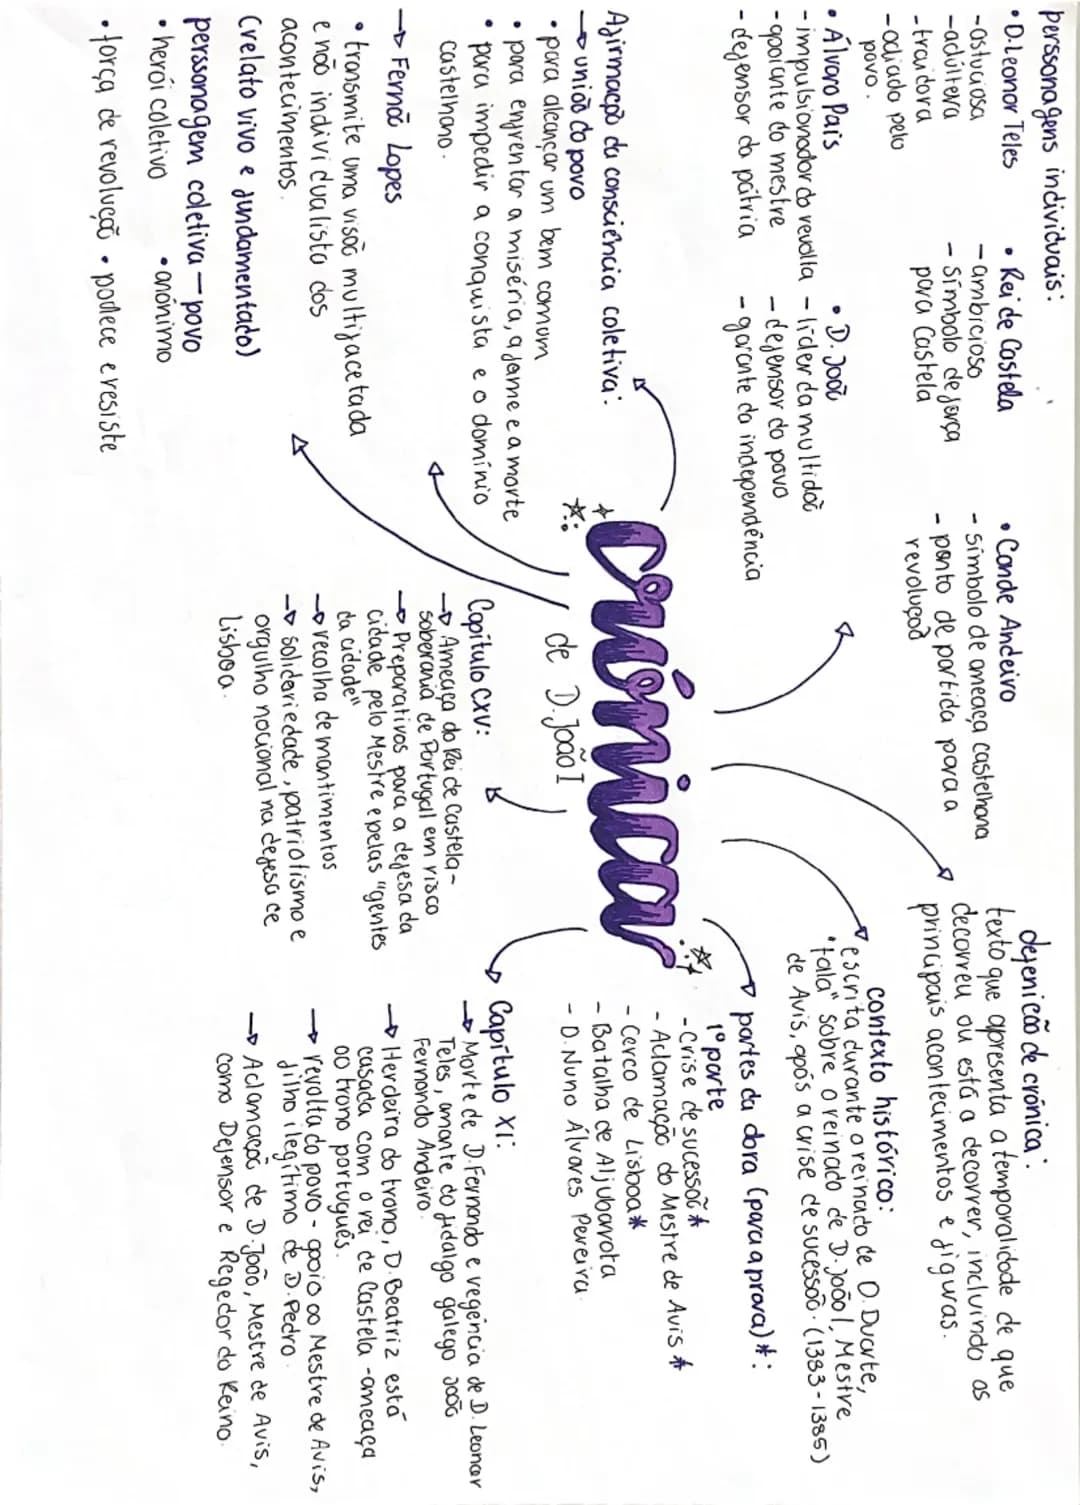 perssonagens individuais:
• D. Leonor Teles
- astuciosa
- adúltera
- traidora
- odiado pelo
povo.
• Rei de Castela
- ambicioso
- símbolo de força
para Castela
• Conde Andeiro
- símbolo de ameaça castelhana
- ponto de partida para a
revolução
• Álvaro Pais
- impulsionador da revolta
- apoiante do mestre
- defensor da pátria
• D. João
- líder da multidão
- defensor do povo
- garante da independência
defenicão de crónica:
texto que apresenta a temporalidade de que
decorreu ou está a decorrer, incluindo os
principais acontecimentos e figuras.
contexto histórico:
escrita durante o reinado de D. Duarte,
"fala" sobre o reinado de D. João I, Mestre
de Avis, após a crise de sucessão. (1383-1385)
Afirmação da consciência coletiva:
→ união do povo
• para alcançar um bem comum
• para enfrentar a miséria, a fome e a morte
• para impedir a conquista e o domínio
castelhano.
Crónica
de D. João I
partes da obra (para a prova)*:
1º parte
- Crise de sucessão*
- Aclamação do Mestre de Avis *
- Cerco de Lisboa*
- Batalha de Aljubarrota
- D. Nuno Álvares Pereira.
→ Fernão Lopes
• transmite uma visão multifacetada
e não individualista dos
acontecimentos.
(relato vivo e fundamentado)
perssonagem coletiva - povo
• herói coletivo • anónimo
• força de revolução • padece e resiste
Capítulo CXV:
→ Ameaça do Rei de Castela -
soberania de Portugal em risco
→ Preparativos para a defesa da
cidade pelo Mestre e pelas "gentes
da cidade"
→ recolha de mantimentos
→ solidariedade, patriotismo e
orgulho nacional na defesa de
Lisboa.
Capítulo XI:
→ Morte de D. Fernando e regência de D. Leonor
Teles, amante do fidalgo galego João
Fernando Andeiro.
→ Herdeira do trono, D. Beatriz está
casada com o rei de Castela - ameaça
ao trono português.
→ revolta do povo - apoio ao Mestre de Avis,
filho ilegítimo de D. Pedro.
→ Aclamação de D. João, Mestre de Avis,
como Defensor e Regedor do Reino.